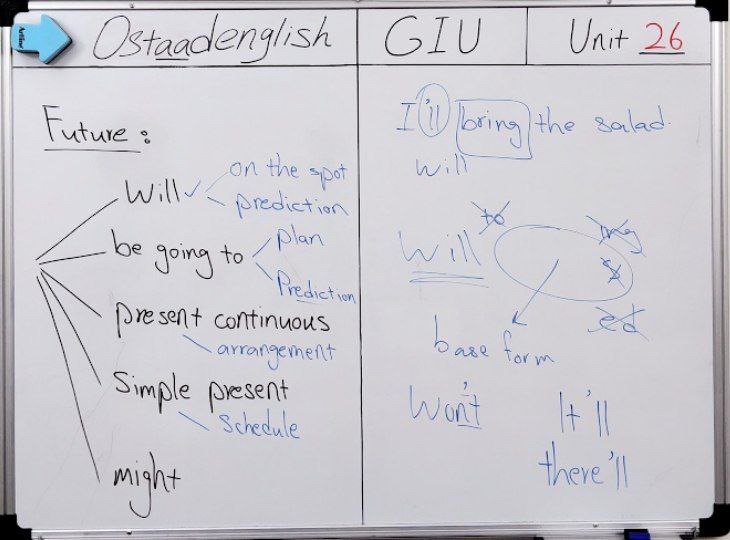 Ostaadenglish GIU Unit 26
Future:
Will ✓
on the spot
prediction
be going to
plan
Prediction
present continuous
arrangement
Simple present
Schedule
might
I'll bring the salad.
will
Will
to
ing
s
ed
base form
Won't
It'll
there'll